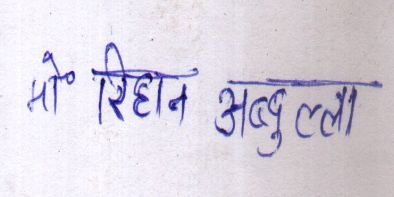 मो॰ रिहान अब्दुल्ला